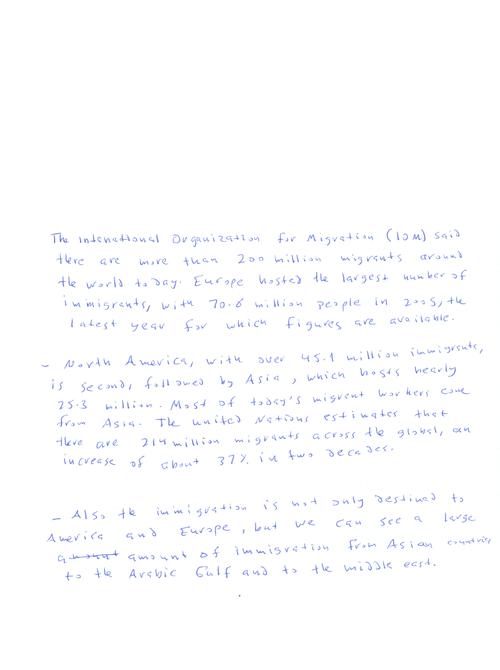 The International Organization for Migration (IOM) said
there are more than 200 million migrants around
the world today. Europe hosted the largest number of
immigrants, with 70.6 million people in 2005, the
latest year for which figures are available.
- North America, with over 45.1 million immigrants,
is second, followed by Asia, which hosts nearly
25.3 million. Most of today's migrant workers come
from Asia. The united Nations estimates that
there are 214 million migrants across the global, an
increase of about 37% in two decades.
- Also the immigration is not only destined to
America and Europe, but we can see a large
amount amount of immigration from Asian countries
to the Arabic Gulf and to the middle east.